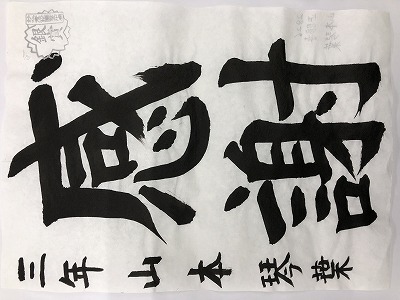 感謝
三年 山本 琴葉